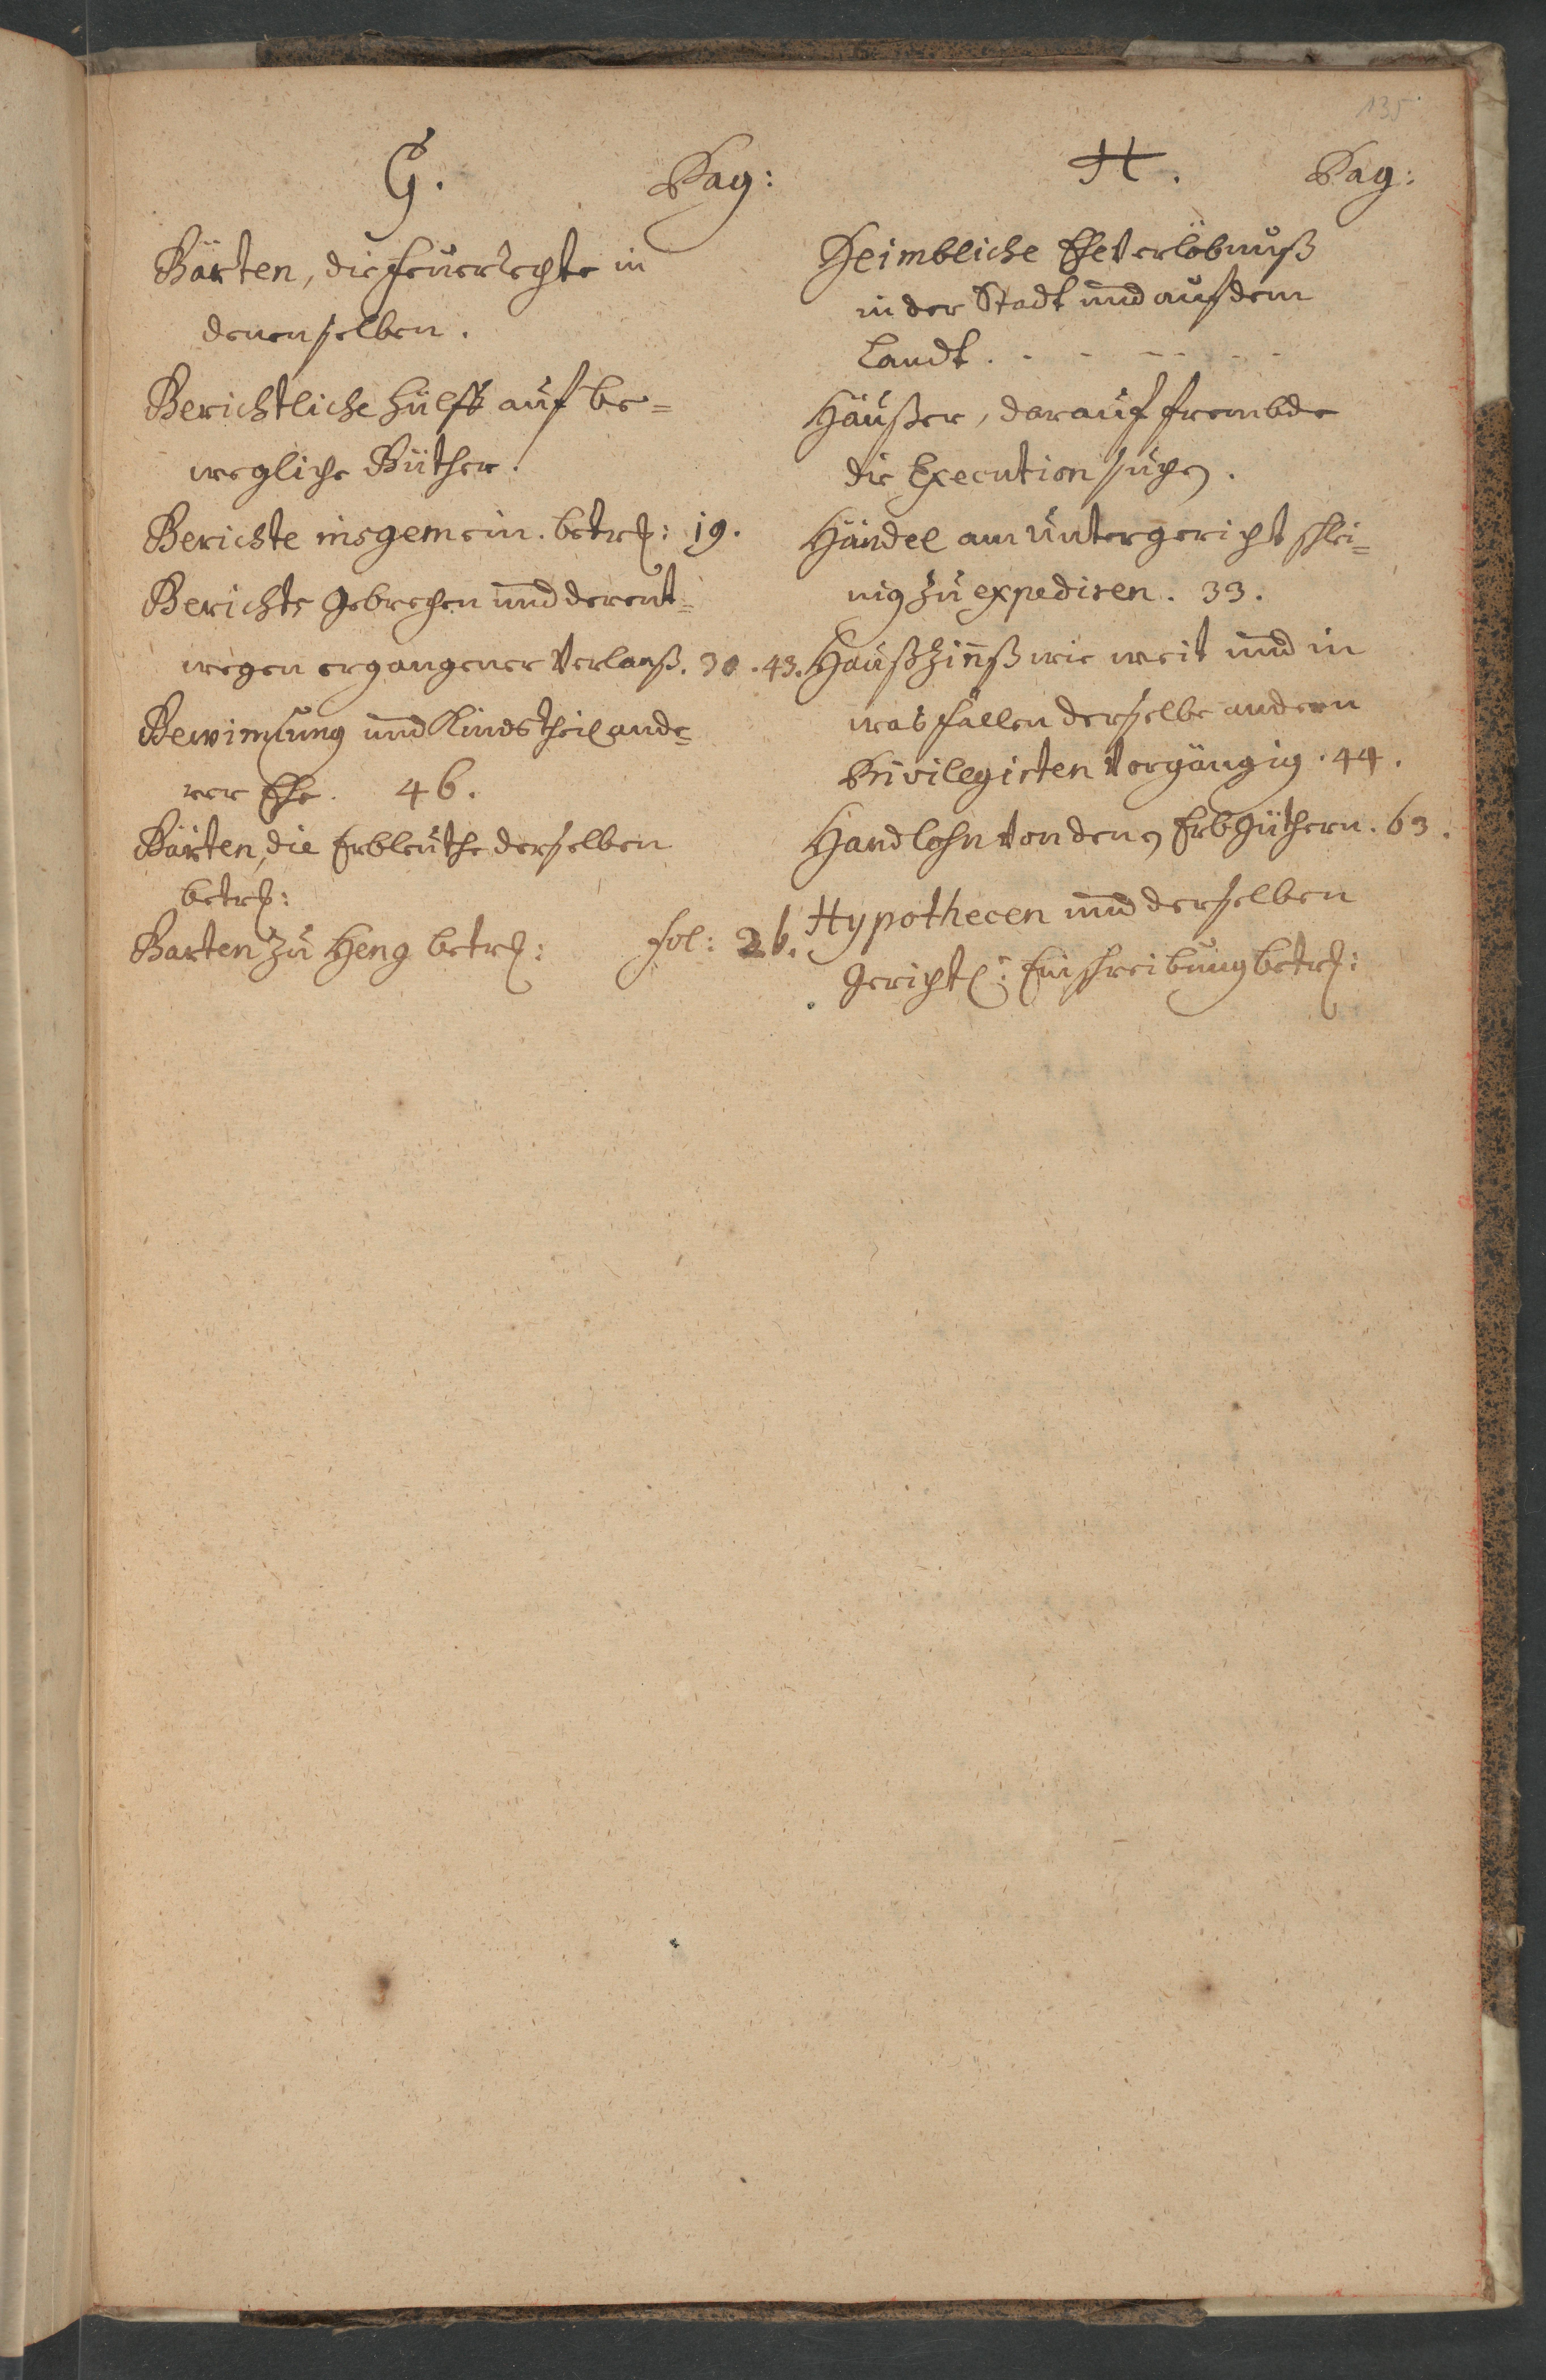 135
G. Pag:
Gärten, die Feuerrechte in
denenselben.
Gerichtliche Hülff auf be=
wegliche Güther.
Gerichte insgemein. betr: 19.
Gerichts Gebrechen und derent=
wegen ergangener Verlaß. 30. 43.
Gewinnung und Kindstheil ande=
rer Ehe. 46.
Gärten, die Erbleuthe derselben
betr:
Garten zu Heng betr: fol: 26.
H. Pag:
Heimbliche Eheverlöbnuß
in der Stadt und auf dem
Landt. - - - - - -
Häußer, darauf frembde
die Execution suchen.
Händel am Untergericht schlei=
nig zu expediren. 33.
Haußzinnß wie weit und in
was fällen derselbe andern
Privilegirten vorgängig. 44.
Handlohn von denen Erbgüthern. 63.
Hypothecen und derselben
Gerichtl: Einschreibung betr: